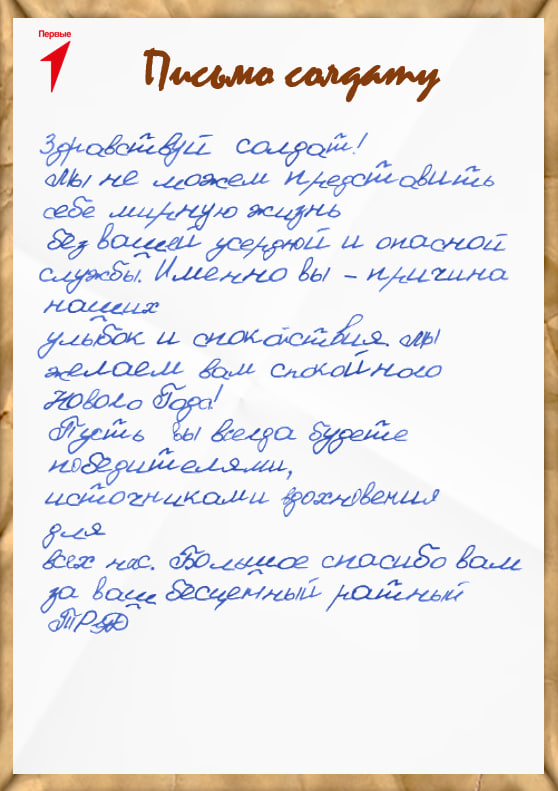 Первые
Письмо солдату
Здравствуй солдат!
Мы не можем представить
себе мирную жизнь
без вашей усердной и опасной
службы. Именно вы - причина
наших
улыбок и спокойствия. Мы
желаем вам спокойного
Нового Года!
Пусть вы всегда будете
победителями,
источниками вдохновения
для
всех нас. Большое спасибо вам
за ваш бесценный ратный
ТРУД